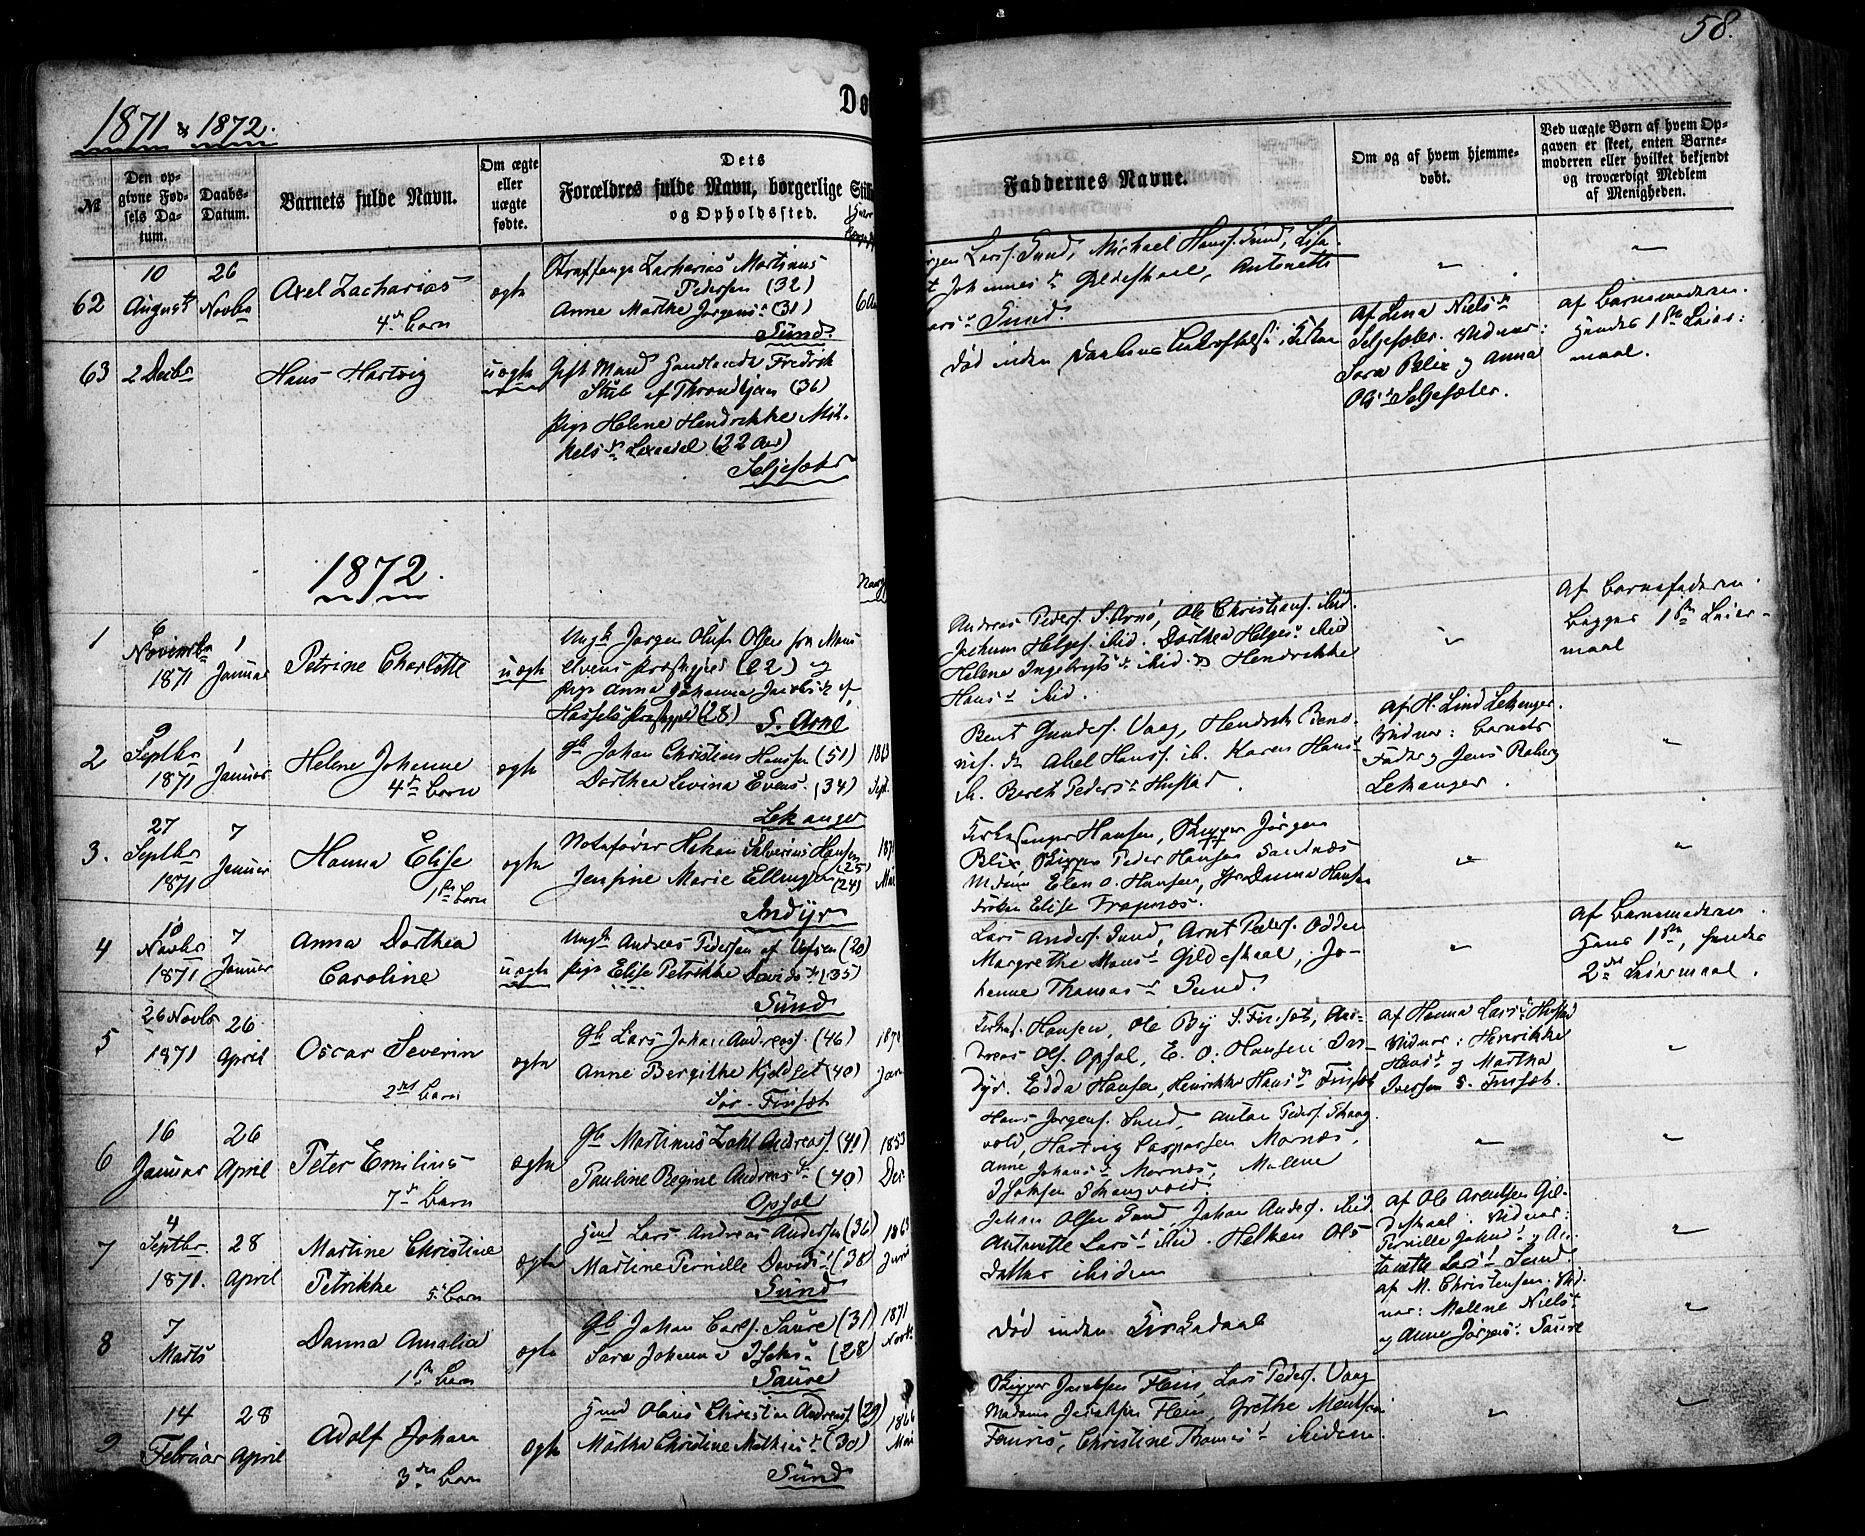 58.
1871 & 1872.
Dø
№
Den op-
givne Fød-
sels Da-
tum.
Daabs-
Datum.
Barnets fulde Navn.
Om ægte
eller
uægte
fødte.
Dets
Forældres fulde Navn, borgerlige Still
og Opholdssted.
Faddernes Navne.
Om og af hvem hjemme-
døbt.
Ved uægte Børn af hvem Op-
gaven er skeet, enten Barne-
moderen eller hvilket bekjendt
og troværdigt Medlem
af Menigheden.
62
10
August
26
Novbr
Axel Zacharias
4de barn
ægte
Zacharias Martinus
Pedersen (32)
Anne Marthe Jørgensd (31)
Sund.
Larss. Sund, Michael Hanss. Sund,
Johannesd Gildeskaal, Antonette
Sund.
"
"
63
2 Decbr
Hans Hartvig
uægte
Gift Mand Handlende Fredrik
Stub af Throndhjem (36)
Pige Helene Hendrikke Mik-
kelsd (22 Aar)
Seljesæter
Død inden
af Lina Nielsd
Seljesæter. Vidner:
Sara Blix og Anna
Olsd Seljesæter.
af Barnemoderen.
Hendes 1ste Leier-
maal.
1872.
1
6
Novembr
1871
1
Januar
Petrine Charlotte
uægte
Ungk Jørgen Oluf Olsen fra
Præstegjeld (22) og
Pige Anna Johanna Jacobsd af
Hassels Præstegjeld (28)
S. Arnø
Andreas Peders. S. Arnø, Ole Christians. ibid.
Jochum Helges. ibid. Dorthea Helgesd ibid
Helene Ingebrigtsd ibid. & Hendrikke
Hansd ibid.
"
af Barnefaderen.
Begges 1ste Leier-
maal
2
9
Septbr
1871
1
Januar
Helene Johanne
4de barn
ægte
Gb Johan Christian Hanssen (51)
Dorthea Levina Evensd (34)
Lekanger
Bent Gunders. Vaag, Hendrik
Abel Hanss. ib. Karen Hansd
ib. Bereth Pedersd Hustad
af H. Lind Lekanger.
Vidner: barnets
Fader og Jens
Lekanger.
"
3.
27
Septbr
1871
7
Januar
Hanna Elise
1ste barn
ægte
Notefører Hakan Silverius Hansen (25)
Josefine Marie Ellingsen (24)
Indyr
Kirkesanger Hansen, Skipper Jørgen
Blix, Skipper Peder Hansen Sandnæs
Madame Elen O. Hansen, Danna Hansen
Frøken Elise Vrapnæs.
"
"
4
10
Novbr
1871
7
Januar
Anna Dorthea
Caroline
uægte
Ungk Andreas Pedersen af Vefsen (20)
Pige Elise Petrikke Davidsd (35)
Sund
Lars Anders. Sund, Arnt Peders. Odden
Margrethe Hansd Gildeskaal, Jo-
hanne Thomasd Sund.
"
af Barnemoderen.
Hans 1ste, hendes
2det Leiermaal.
5
26 Novbr
1871
26
April
Oscar Severin
2det barn
ægte
Gb Lars Johan Andreass. (46)
Anne Bergithe Kjeldset (40)
Sør-Finset
Kirkes. Hansen, Ole By S. Finset, An-
dreas Ols. Opsal, E. O. Hansen In-
dyr. Edda Hansen, Henrikke Hansd Finset
af Hanna Larsd Hustad
Vidner: Henrikke
Hansd og Martha
Iversen S. Finset.
"
6
16
Januar
26
April
Peter Emilius
7de barn
ægte
Gb Martinus Zahl Andreass. (41)
Pauline Regine Andreasd (40)
Opsal
1853
Hans Jørgens. Sund, Anton Peders. Skaug-
vold, Hartvig Caspersen Mornæs,
Anne Johansd Mornæs, Malene
Skaugvold.
"
"
7
4
Septbr
1871.
28
April
Martine Christine
Petrikke
5te barn
ægte
Hmd Lars Andreas Andersen (36)
Martine Pernille Davidsd (38)
Sund
1863
Johan Olsen Sund, Johan Anders. ibid
Antonette Larsd ibid. Helken Ols-
datter ibidem
af Ole Arentsen Gil-
deskaal. Vidner:
Pernille Johnsd og An-
tonette Larsd Sund
"
8
7
Marts
Danna Amalia
1ste barn
ægte
Gb Johan Carls. Saure (31)
Sara Johanna (28)
Saure
1871
Død inden Kirkedaab
af M. Christensen. Vid-
ner: Malene Nielsd
og Anne Jørgensd Saure
"
9
14
Februar
28
April
Adolf Johan
3die barn
ægte
Hmd Olaus Christian Andreass. (29)
Martha Christine Mathiasd (30)
Sund
1866
Skipper Jacobsen Flein, Lars Peders. Vaag
Madame Jacobsen Flein, Grethe Mentsen
Fauris, Christine Thomasd ibidem.
"
"